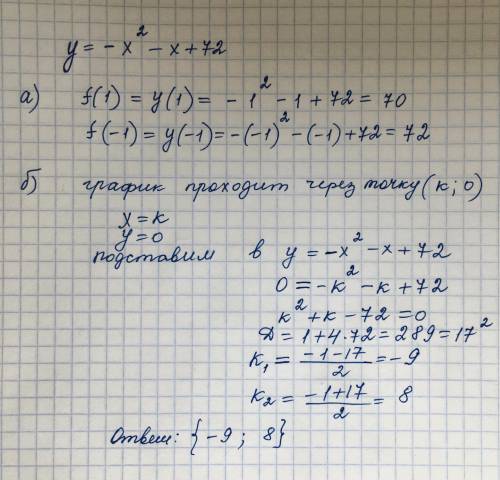 y = -x² - x + 72
а) f(1) = y(1) = -1² - 1 + 72 = 70
f(-1) = y(-1) = -(-1)² - (-1) + 72 = 72
б) график проходит через точку (к; 0)
x = к
y = 0
подставим в y = -x² - x + 72
0 = -к² - к + 72
к² + к - 72 = 0
Д = 1 + 4·72 = 289 = 17²
к₁ = (-1-17)/2 = -9
к₂ = (-1+17)/2 = 8
Ответ: {-9; 8}